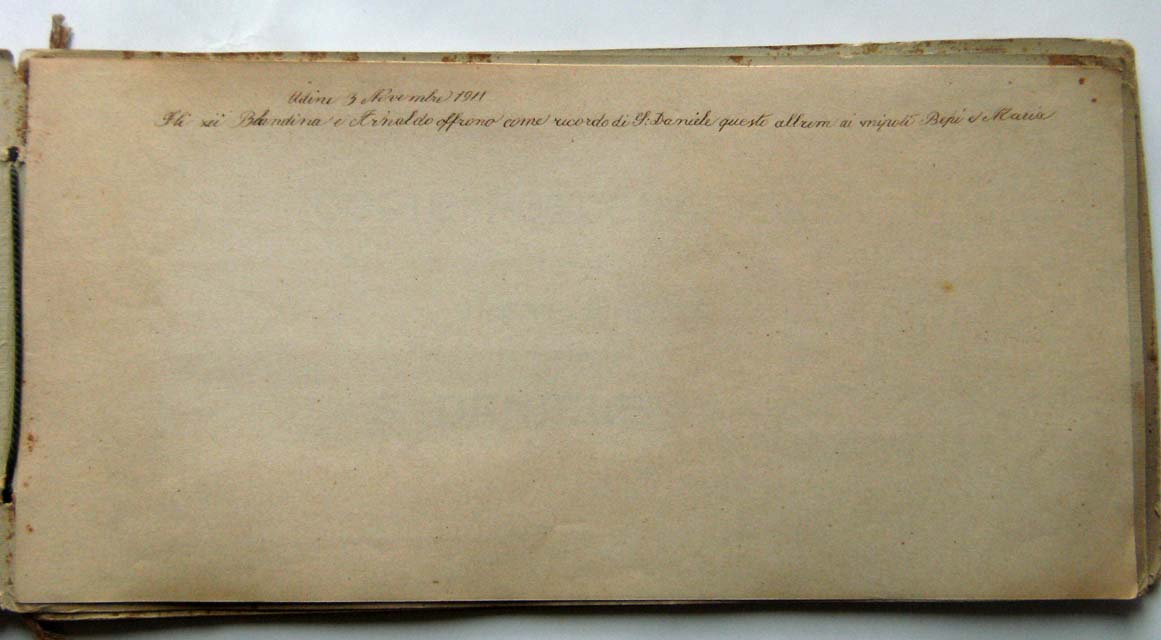 Udine 3 Novembre 1911
Gli zii Blandina e Arnaldo offrono come ricordo di S: Daniele questo album ai nipoti Bepi e Maria